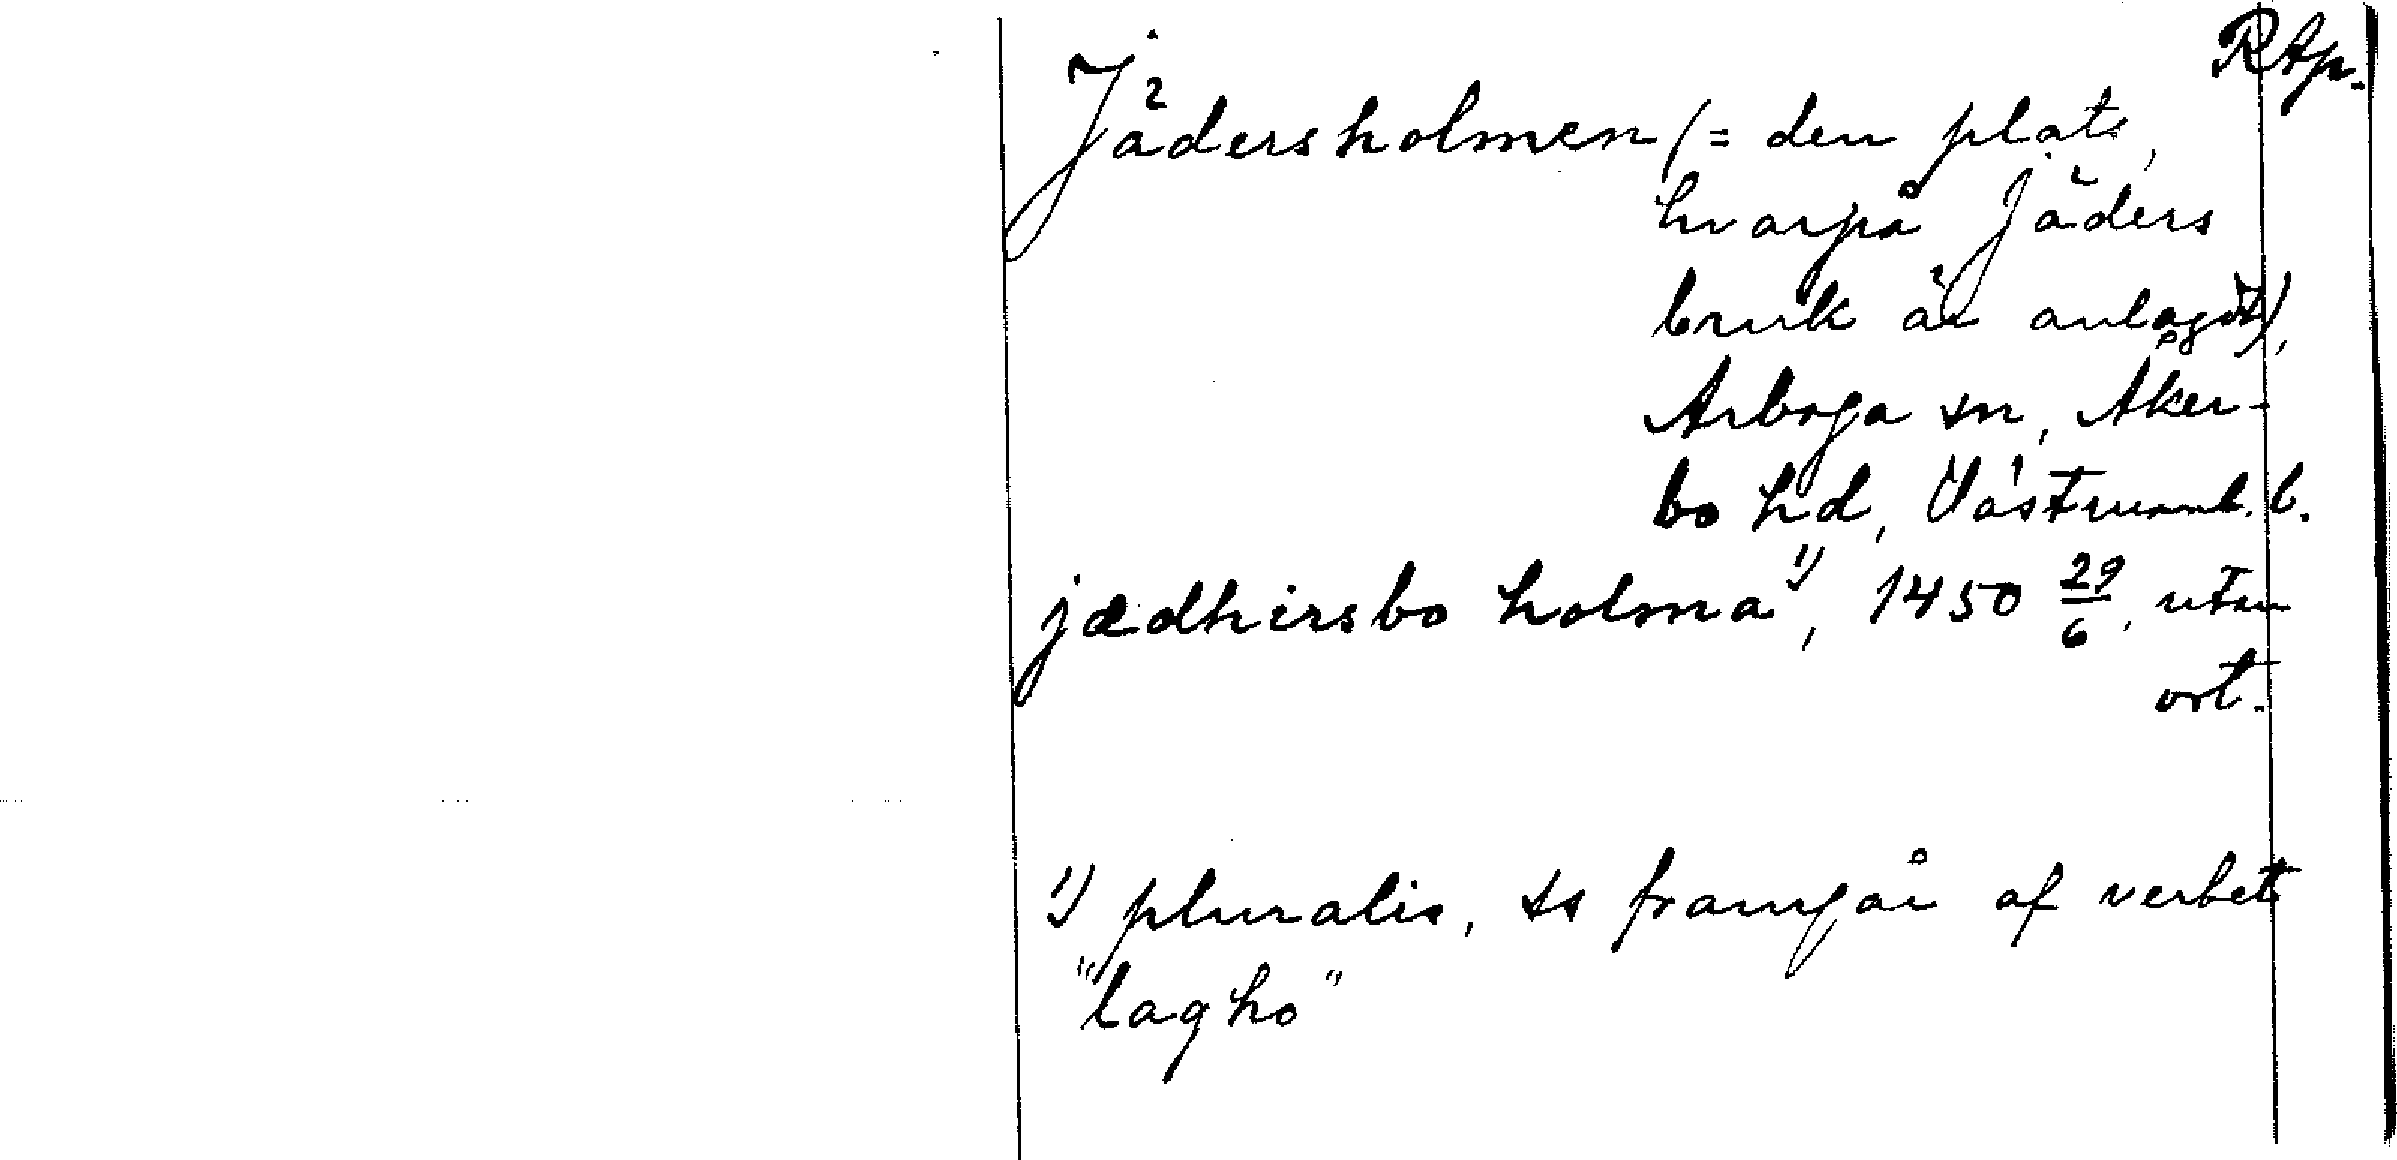 RAp.
Jädersholmen (= den plats,
hvarpå Jäders
bruk är anlagdt),
Arboga sn, Åker-
bo hd, Västmanl. l.
jædhirsbo holma¹⁾, 1450 29/6, utan
ort.
¹⁾ pluralis, ss framgår af verbet
"lagho"